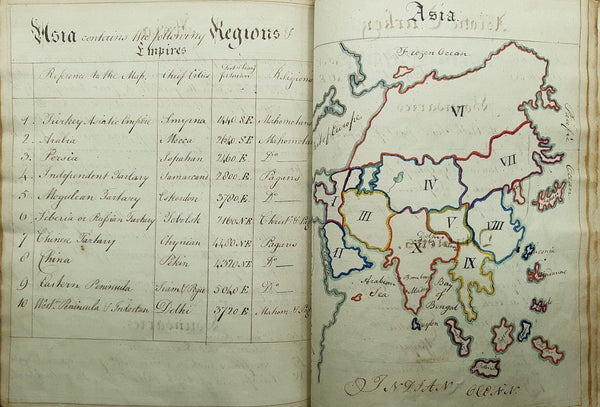 Asia contains the following Regions &
Empires
Reference to the Map. Chief Cities Religions
1 Turkey Asiatic Empire Smyrna 1440 S E Mahometan
2 Arabia Mecca 2640 S E Mahomet
3 Persia Ispahan 2460 E Do
4 Independent Tartary Samarcand 2800 E Pagans
5 Mogulean Tartary 3780 E Do
6 Siberia or Russian Tartary Tobolsk 2160 N E
7 Chinea Tartary Chynian 4480 N E Pagans
8 China Pekin 4320 S E Do
9 Eastern Peninsula Siam & Pegu 5040 E Do
10 West. Peninsula & Indostan Delhi 3720 E
Asia
Frozen Ocean
Part of Europe
Pacific
Ocean
VI
VII
IV
I
III
V
VIII
II
X
IX
Arabian
Sea
Bay
of
Bengal
Ceylon
INDIAN OCEAN